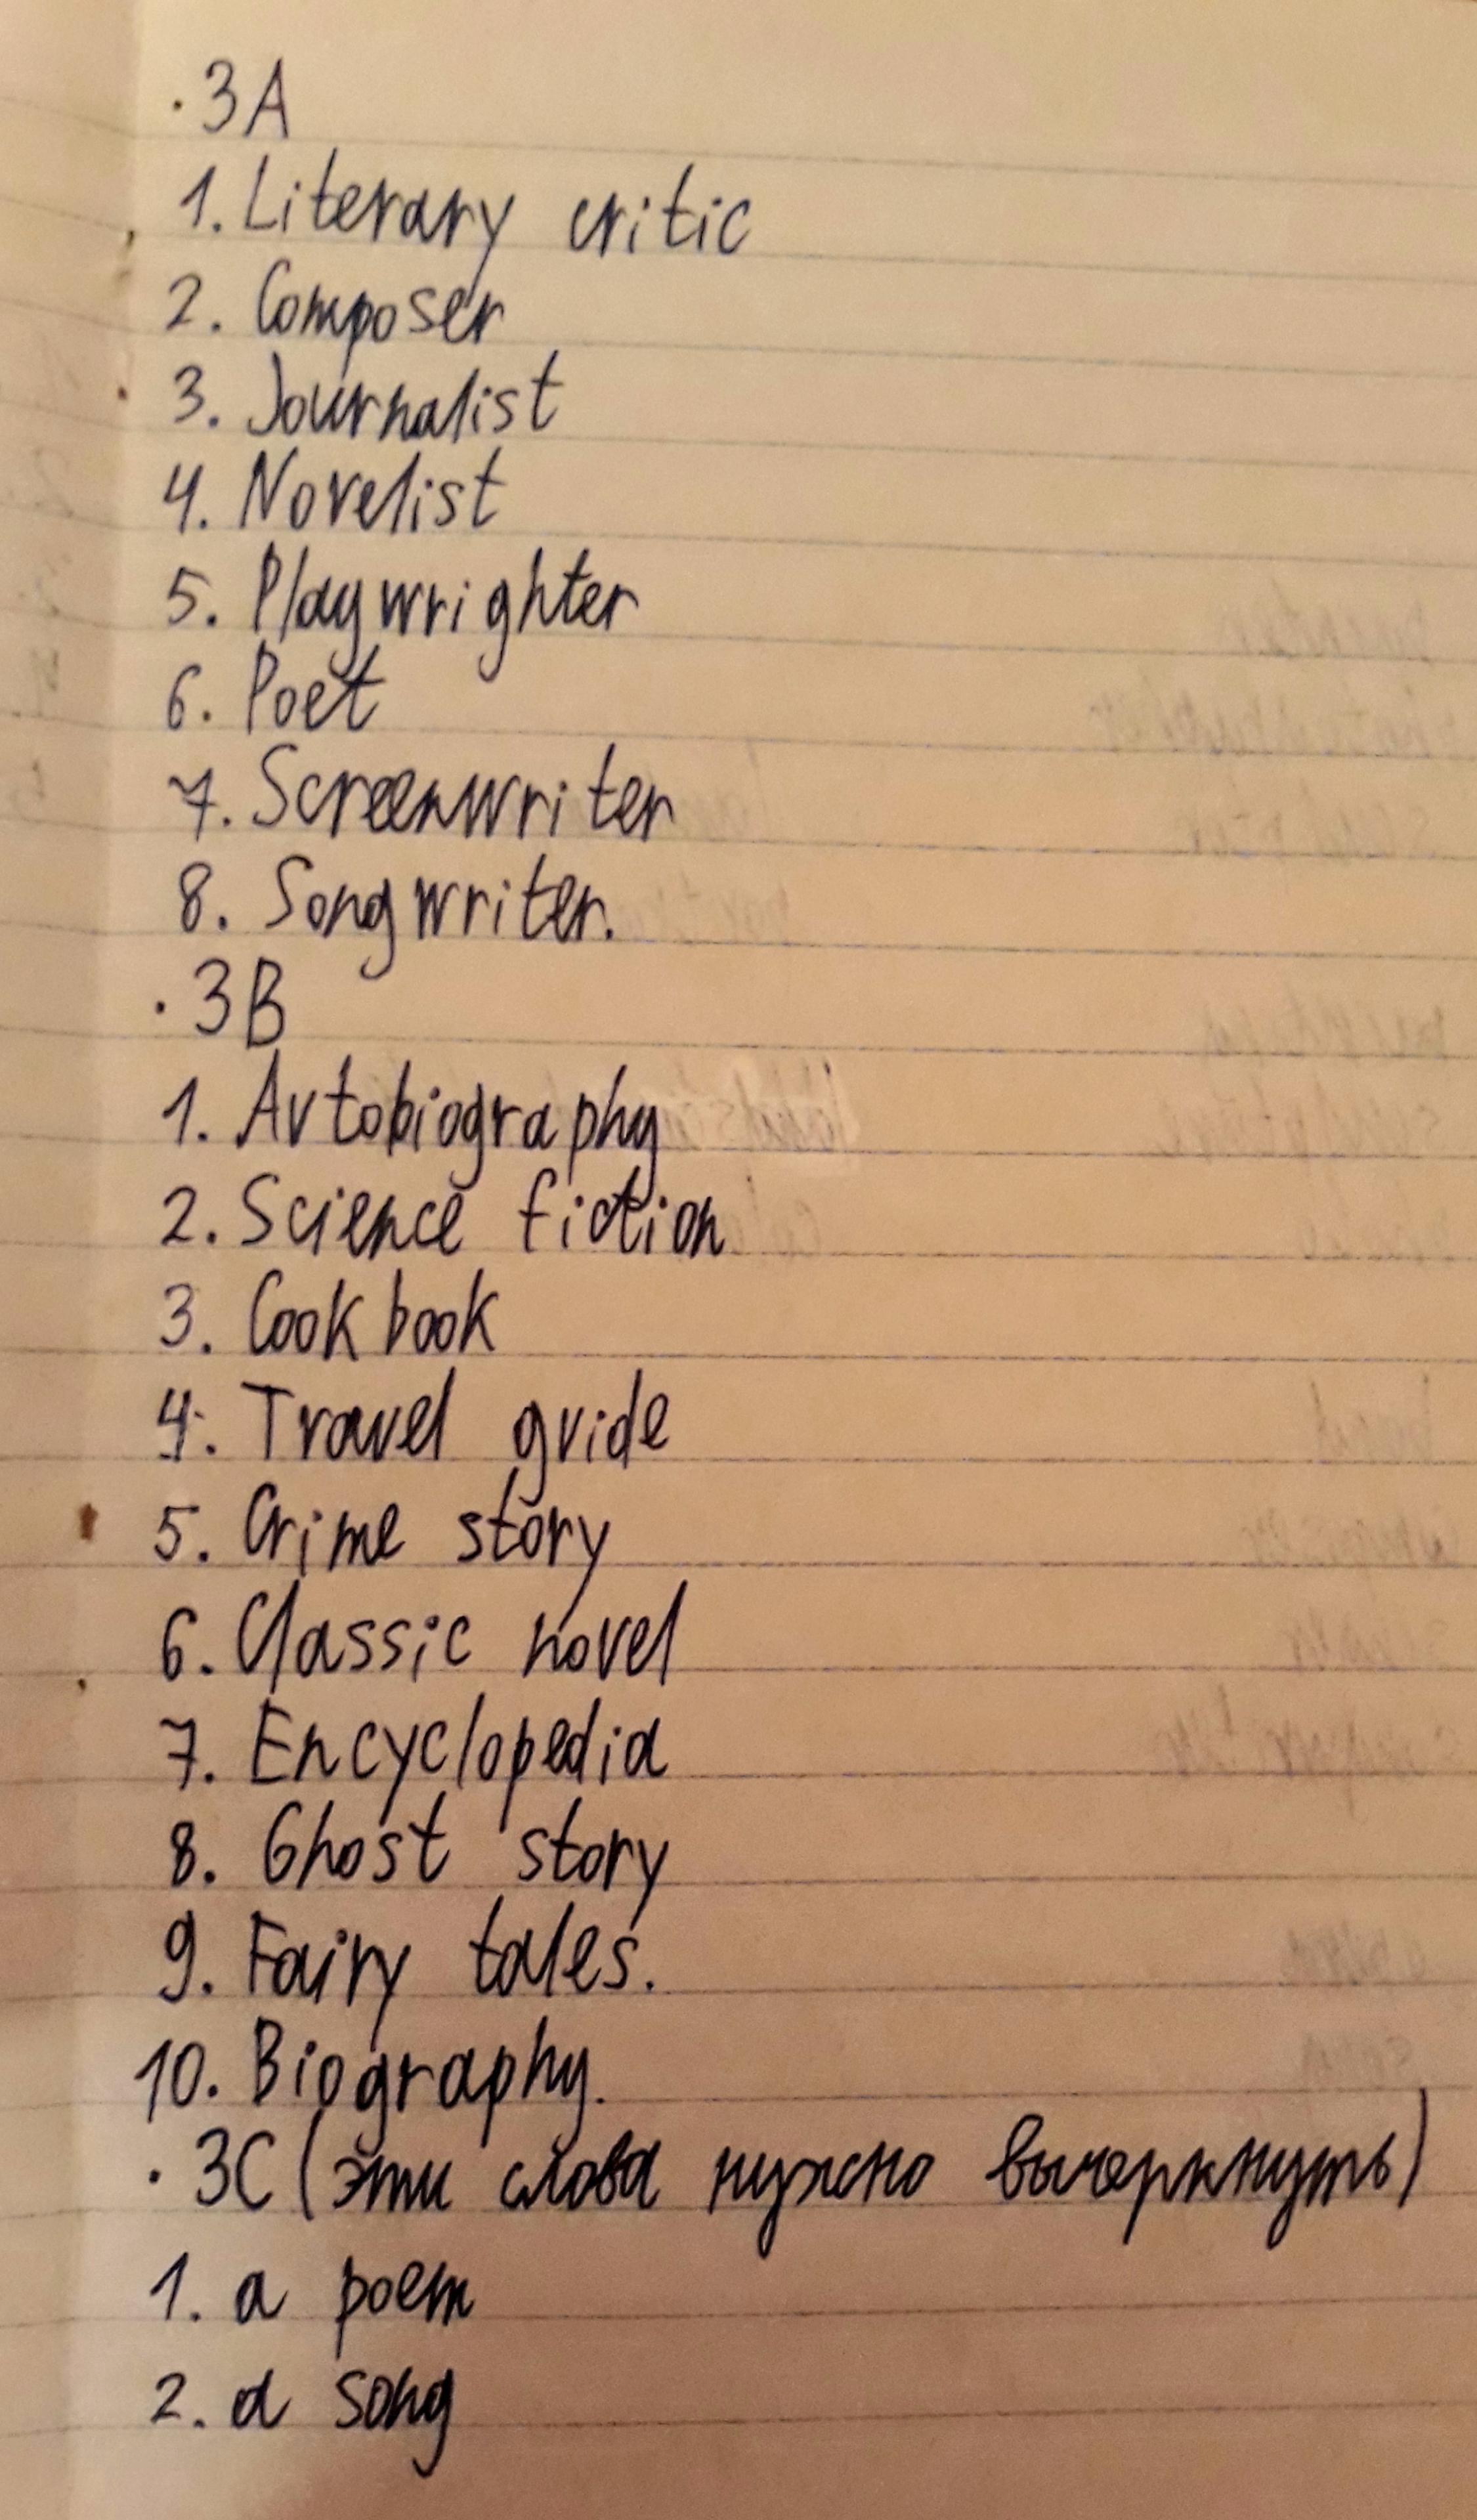 · 3A
1. Literary critic
2. Composer
3. Journalist
4. Novelist
5. Playwrighter
6. Poet
7. Screenwriter
8. Songwriter.
· 3B
1. Avtobiography
2. Science fiction
3. Cook book
4. Travel guide
5. Crime story
6. Classic novel
7. Encyclopedia
8. Ghost story
9. Fairy tales.
10. Biography.
· 3C (эти слова нужно вычеркнуть)
1. a poem
2. a song